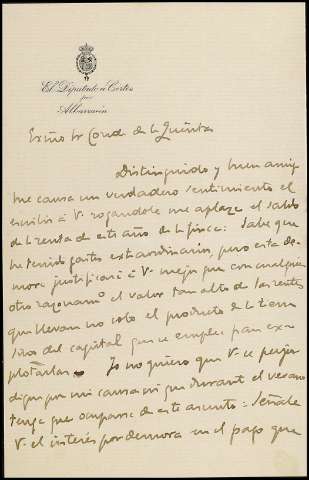 El Diputado a Cortes
por
Albarracín
Exmo Sr Conde de la
Distinguido y buen amigo
me causa un verdadero sentimiento el
escribir á V. rogandole me aplaze el saldo
de la renta de este año de la finca: Sabe que
he tenido gastos extraordinarios, pero esta de-
mora justificará á V. mejor que con cualquier
otro razonamto el valor tan alto de las rentas
que llevan no solo el producto de la tierra
sino del capital que se emplea para ex-
plotarlas. Yo no quiero que V. se perju-
dique por mi causa ni que durante el verano
tenga que ocuparse de este asunto: Señale
V. el interés por demora en el pago que